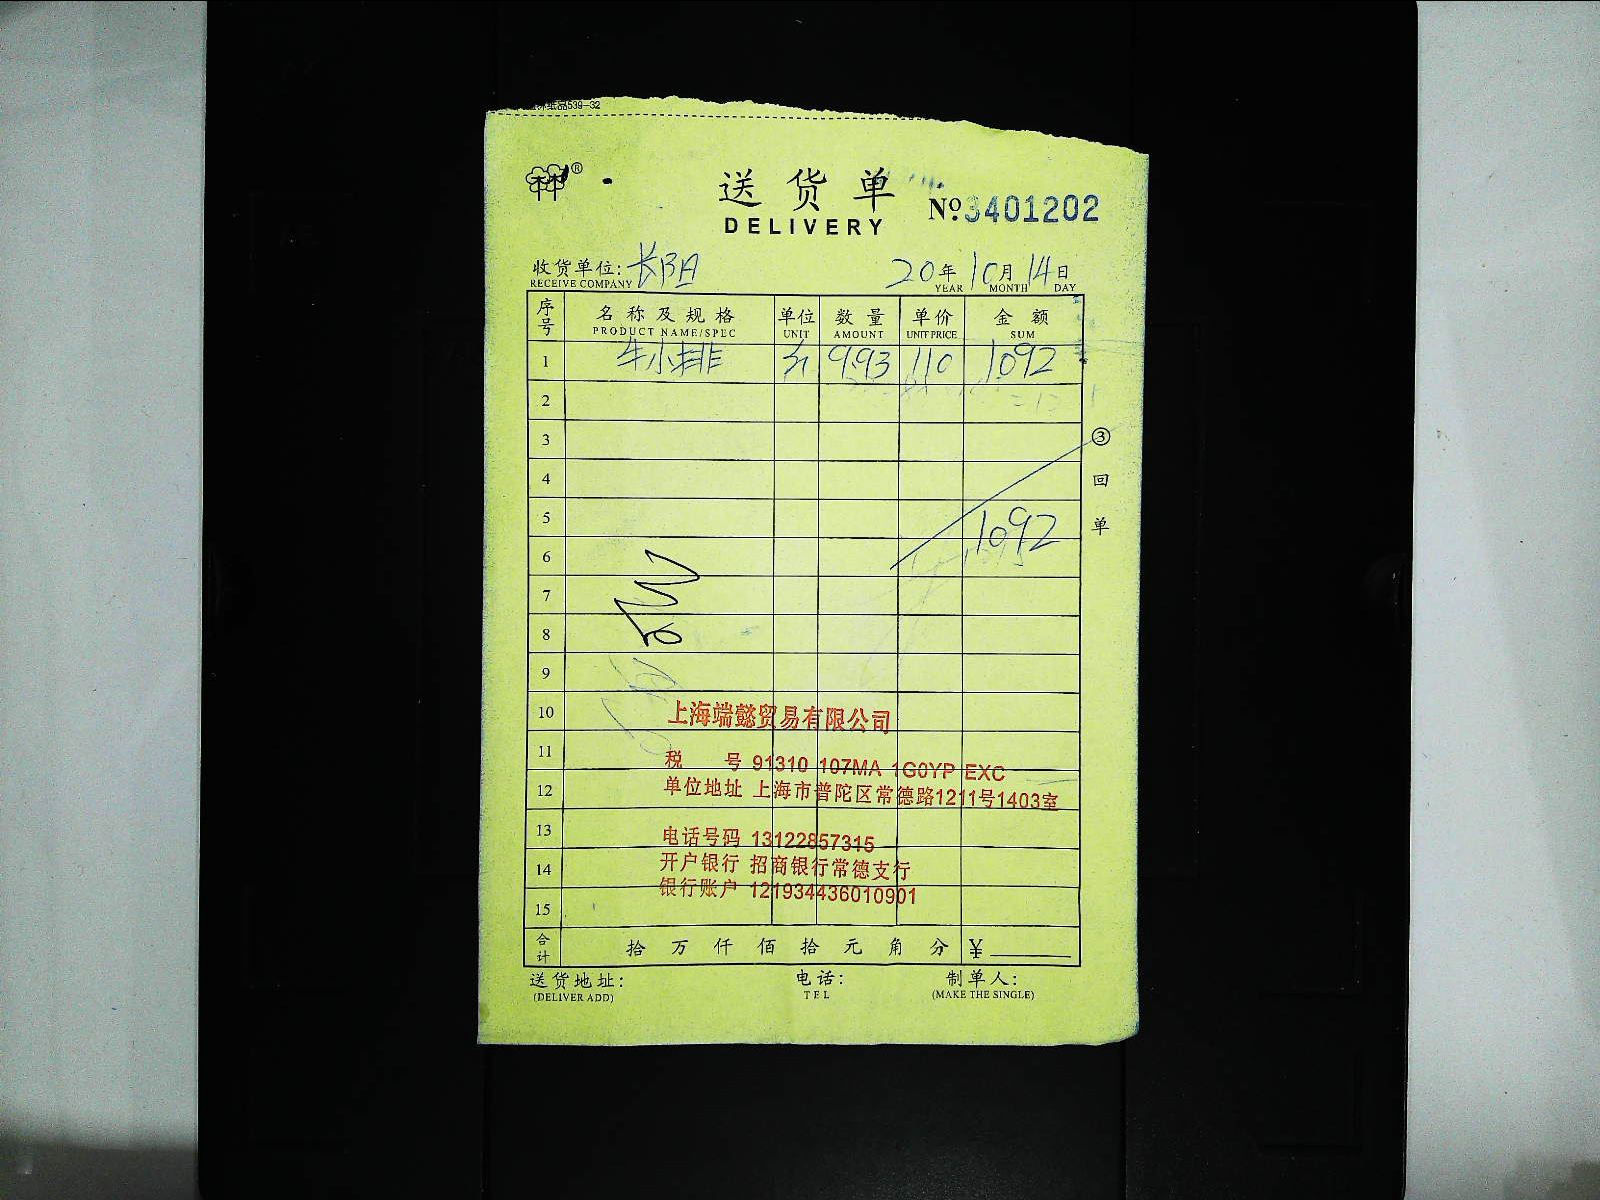 纸品539-32
送货单
DELIVERY
№3401202
收货单位: 长BA
RECEIVE COMPANY
20年10月14日
YEAR MONTH DAY
序号 名称及规格 单位 数量 单价 金额
PRODUCT NAME/SPEC UNIT AMOUNT UNIT PRICE SUM
1 牛小排 9.93 110 1092
2
3
4
5 1092
6
7
8
9
10
11
12
13
14
15
③回单
上海端懿贸易有限公司
税 号 91310 107MA 1G0YP EXC
单位地址 上海市普陀区常德路1211号1403室
电话号码 13122857315
开户银行 招商银行常德支行
银行账户 121934436010901
合计 拾万仟佰拾元角分 ¥
送货地址: 电话: 制单人:
(DELIVER ADD) TEL (MAKE THE SINGLE)